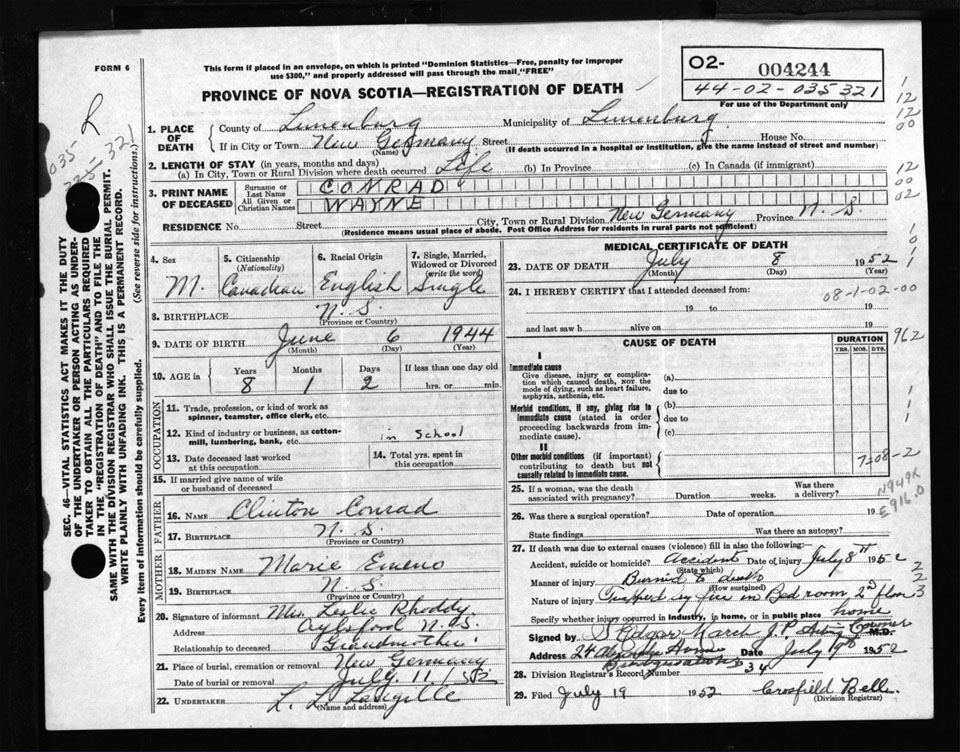 FORM 6
This form if placed in an envelope, on which is printed "Dominion Statistics—Free, penalty for improper
use $300," and properly addressed will pass through the mail "FREE"
PROVINCE OF NOVA SCOTIA—REGISTRATION OF DEATH
O2- 004244
44-02-035321
For use of the Department only
1. PLACE OF DEATH
County of Lunenburg Municipality of Lunenburg
If in City or Town New Germany Street House No.
(Name) (If death occurred in a hospital or institution, give the name instead of street and number)
2. LENGTH OF STAY (in years, months and days)
(a) In City, Town or Rural Division where death occurred Life (b) In Province (c) In Canada (if immigrant)
3. PRINT NAME OF DECEASED
Surname or Last Name CONRAD
All Given or Christian Names WAYNE
RESIDENCE No. Street City, Town or Rural Division New Germany Province N. S.
(Residence means usual place of abode. Post Office Address for residents in rural parts not sufficient)
4. Sex M.
5. Citizenship (Nationality) Canadian
6. Racial Origin English
7. Single, Married, Widowed or Divorced (write the word) Single
8. BIRTHPLACE N. S.
(Province or Country)
9. DATE OF BIRTH June 6 1944
(Month) (Day) (Year)
10. AGE in Years Months Days If less than one day old
8 1 2 hrs. or min.
OCCUPATION
11. Trade, profession, or kind of work as spinner, teamster, office clerk, etc.
12. Kind of industry or business, as cotton-mill, lumbering, bank, etc. in School
13. Date deceased last worked at this occupation
14. Total yrs. spent in this occupation
15. If married give name of wife or husband of deceased
FATHER
16. NAME Clinton Conrad
17. BIRTHPLACE N. S.
(Province or Country)
MOTHER
18. MAIDEN NAME Marie Emeno
19. BIRTHPLACE N. S.
(Province or Country)
20. Signature of informant Mrs. Leslie Rhoddy
Address Aylsford N. S.
Relationship to deceased Grandmother
21. Place of burial, cremation or removal New Germany
Date of burial or removal July 11/52
22. UNDERTAKER L. L.
(Name and address)
MEDICAL CERTIFICATE OF DEATH
23. DATE OF DEATH July 8 1952
(Month) (Day) (Year)
24. I HEREBY CERTIFY that I attended deceased from:
08-1-02-00
19 to 19
and last saw h alive on 19
CAUSE OF DEATH
DURATION
YRS. MOS. DYS.
962
I
Immediate cause
Give disease, injury or complication which caused death, NOT the mode of dying, such as heart failure, asphyxia, asthenia, etc.
(a)
due to
Morbid conditions, if any, giving rise to immediate cause (stated in order proceeding backwards from immediate cause).
(b)
due to
(c)
II
Other morbid conditions (if important) contributing to death but not causally related to immediate cause.
7-08-2
25. If a woman, was the death associated with pregnancy? Duration weeks. Was there a delivery?
N949X
E916.0
26. Was there a surgical operation? Date of operation 19
State findings Was there an autopsy?
27. If death was due to external causes (violence) fill in also the following:—
Accident, suicide or homicide? Accident Date of injury July 8th 1952
(State which)
Manner of injury Burned to death
(How sustained)
Nature of injury Trapped by fire in Bed room 2nd floor
Specify whether injury occurred in industry, in home, or in public place home
Signed by J.P. Acting Coroner M.D.
Address Date July 9th 1952
Bridgewater
28. Division Registrar's Record Number 34
29. Filed July 19 1952 Crosfield Bell
SEC. 46—VITAL STATISTICS ACT MAKES IT THE DUTY
OF THE UNDERTAKER OR PERSON ACTING AS UNDER-
TAKER TO OBTAIN ALL THE PARTICULARS REQUIRED
IN THE "REGISTRATION OF DEATH" AND TO FILE THE
SAME WITH THE DIVISION REGISTRAR WHO SHALL ISSUE THE BURIAL PERMIT.
WRITE PLAINLY WITH UNFADING INK. THIS IS A PERMANENT RECORD.
Every item of information should be carefully supplied. (See reverse side for instructions.)